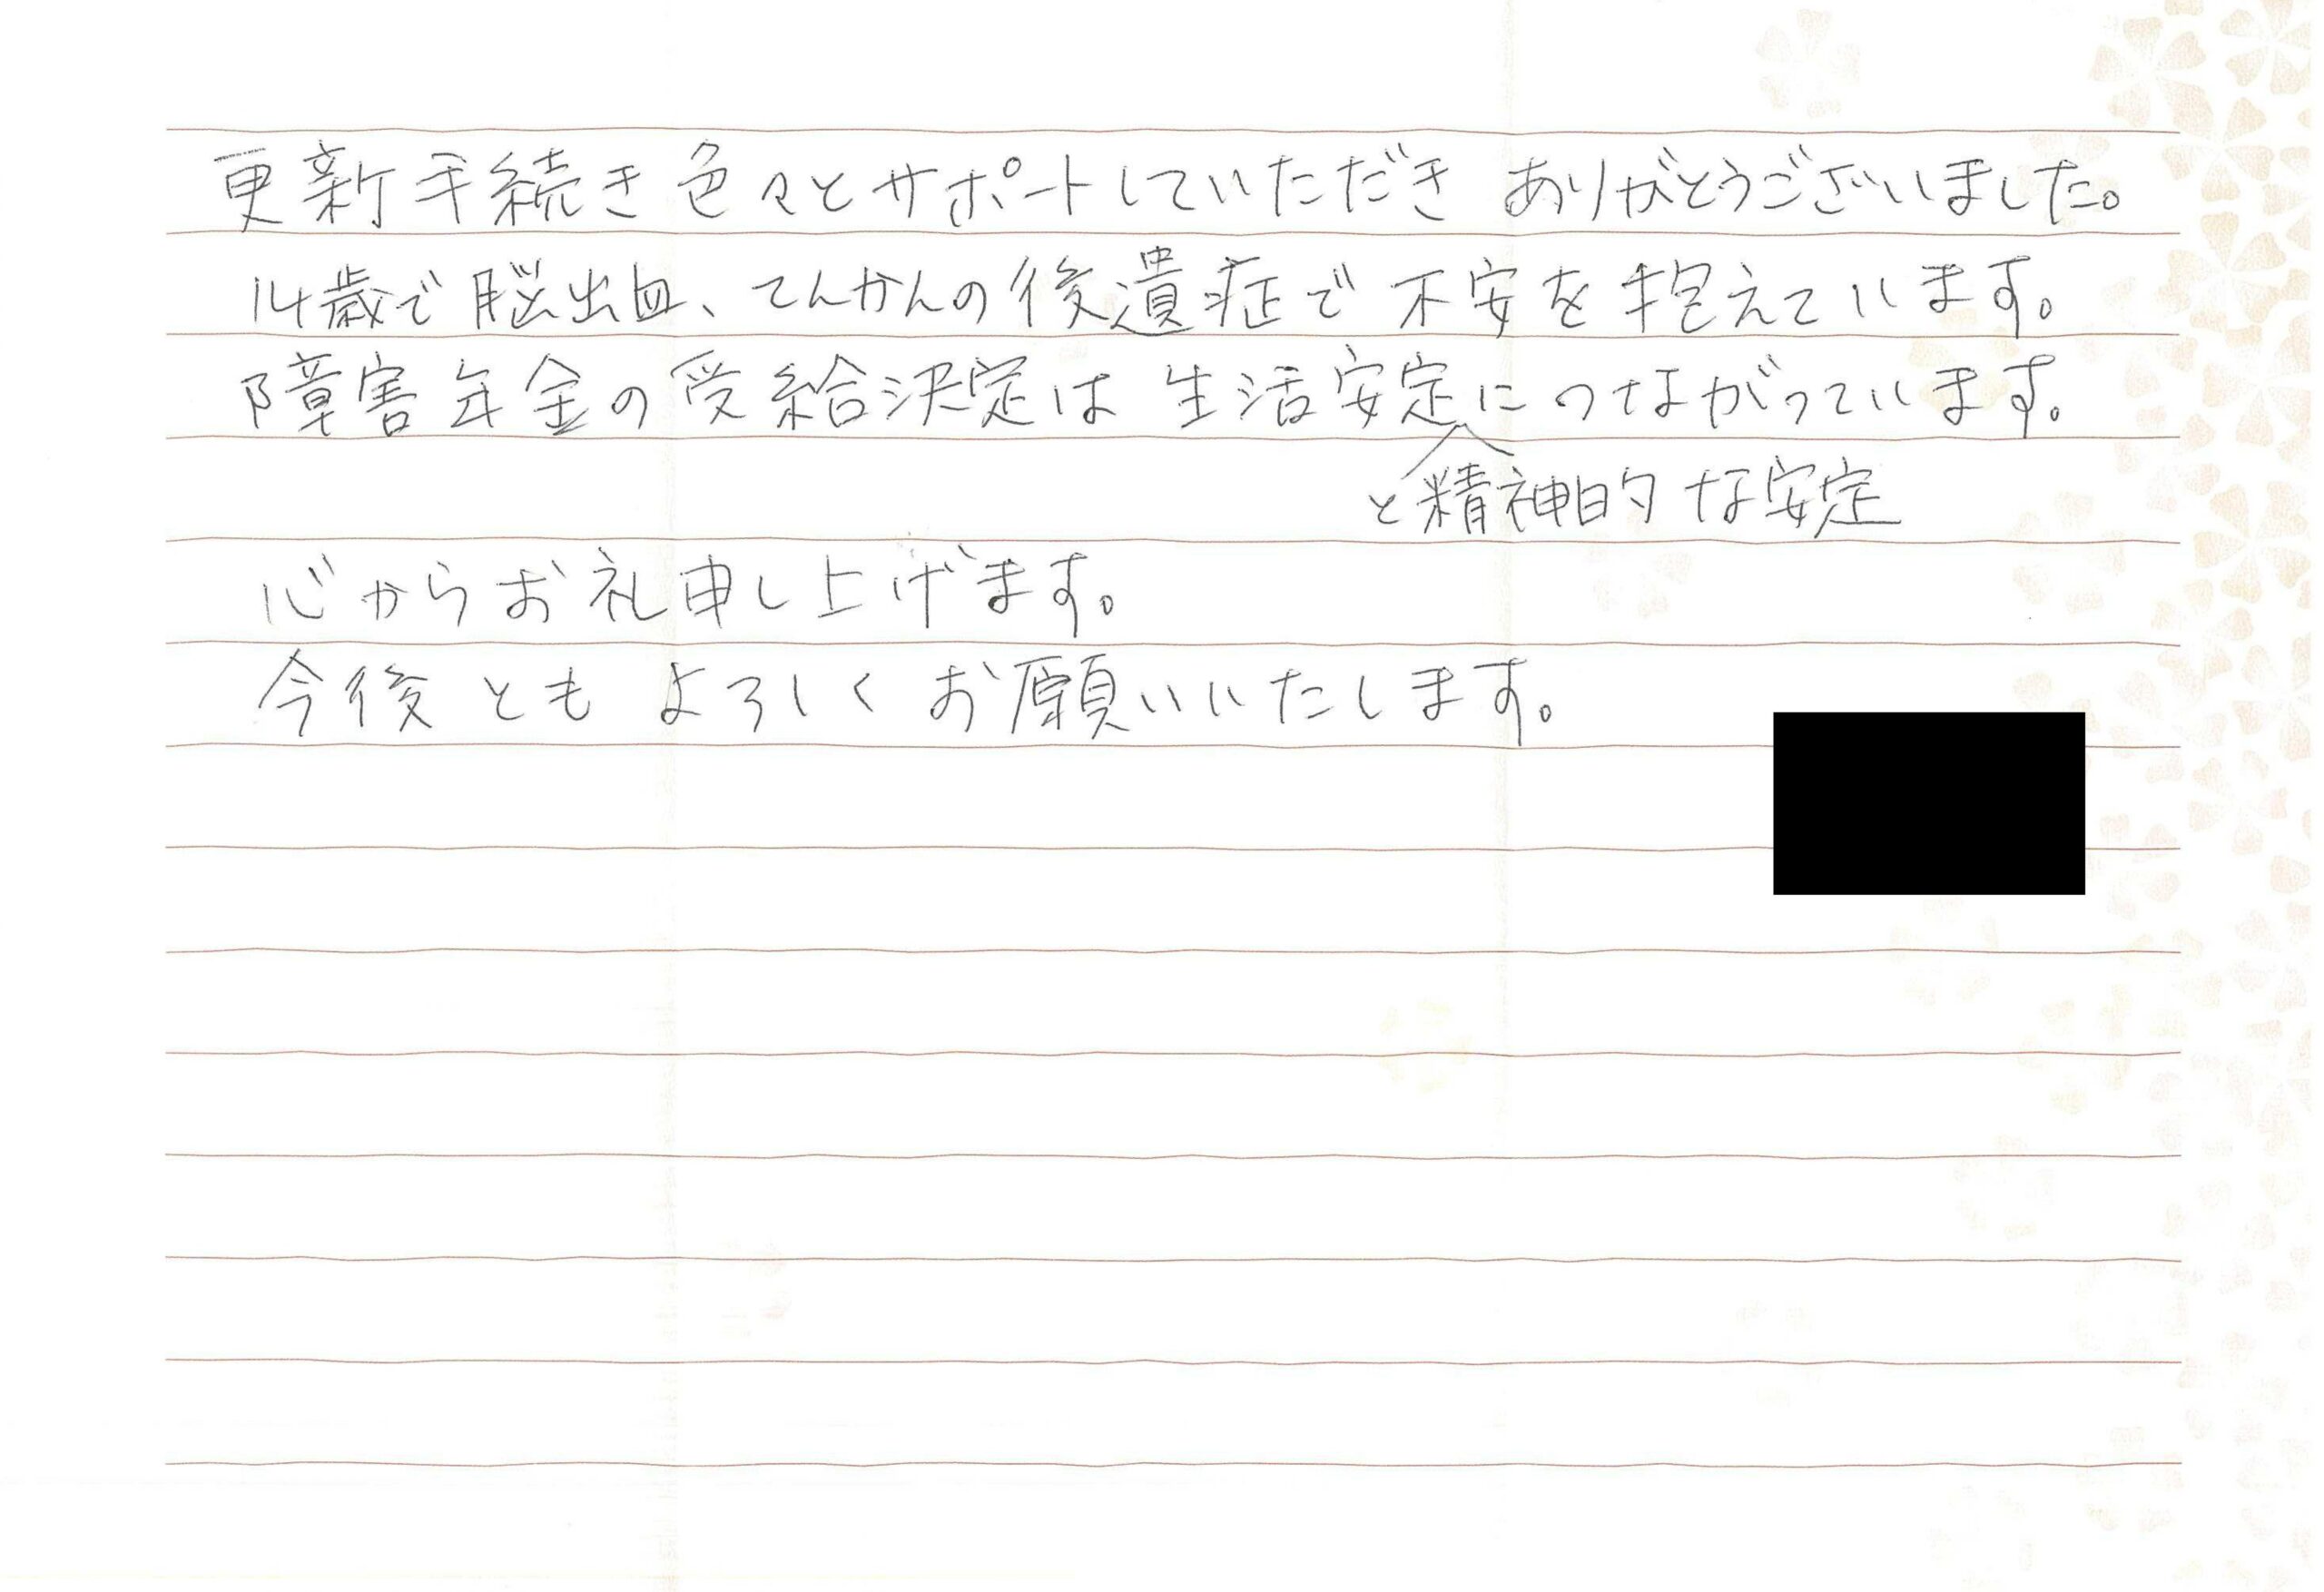 更新手続き色々とサポートしていただき ありがとうございました。
14歳で脳出血、てんかんの後遺症で不安を抱えています。
障害年金の受給決定は生活安定につながっています。
と精神的な安定
心からお礼申し上げます。
今後ともよろしくお願いいたします。